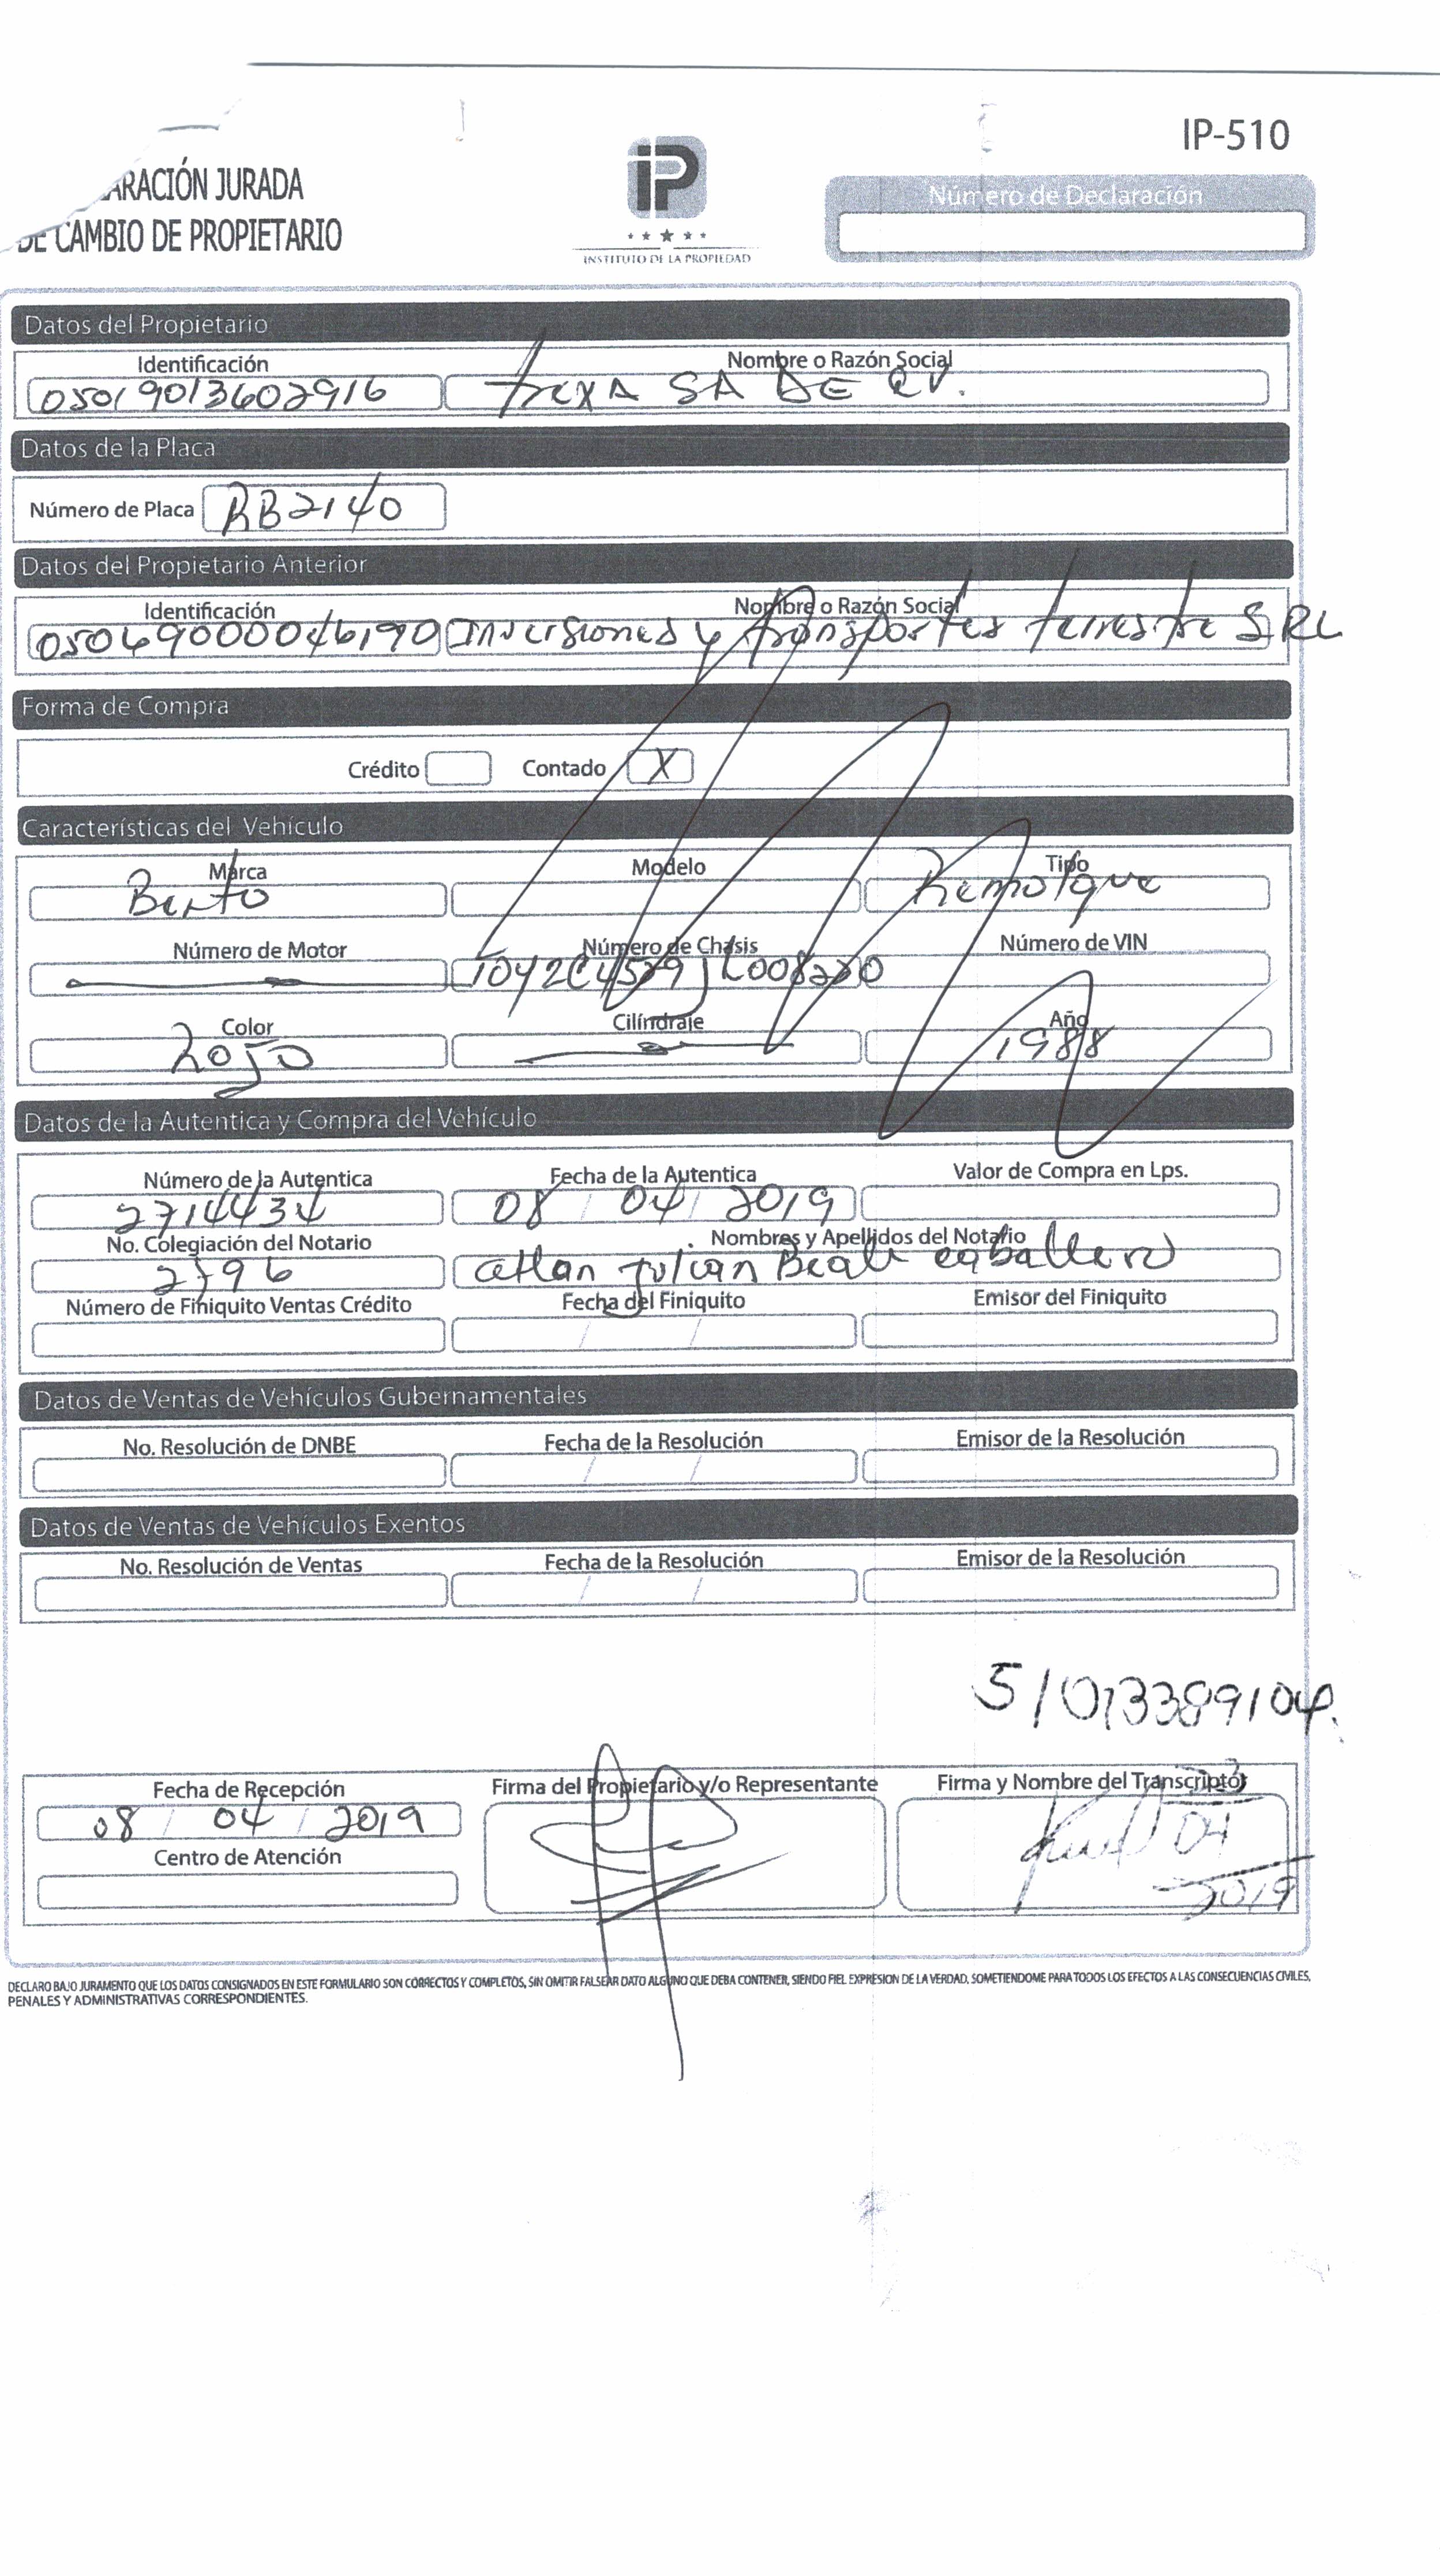 IP-510
ARACIÓN JURADA
DE CAMBIO DE PROPIETARIO
iP
INSTITUTO DE LA PROPIEDAD
Número de Declaración
Datos del Propietario
Identificación Nombre o Razón Social
05019013602916 trxA SA DE CV.
Datos de la Placa
Número de Placa RB2140
Datos del Propietario Anterior
Identificación Nombre o Razón Social
05069000046190 Inversiones y transportes terrestre SRL
Forma de Compra
Crédito Contado X
Características del Vehículo
Marca Modelo Tipo
Remolque
Número de Motor Número de Chasis Número de VIN
Color Cilíndraje Año
Rojo 1988
Datos de la Autentica y Compra del Vehículo
Número de la Autentica Fecha de la Autentica Valor de Compra en Lps.
2714434 08 / 04 / 2019
No. Colegiación del Notario Nombres y Apellidos del Notario
2796 allan julian caballero
Número de Finiquito Ventas Crédito Fecha del Finiquito Emisor del Finiquito
/ /
Datos de Ventas de Vehículos Gubernamentales
No. Resolución de DNBE Fecha de la Resolución Emisor de la Resolución
/ /
Datos de Ventas de Vehículos Exentos
No. Resolución de Ventas Fecha de la Resolución Emisor de la Resolución
/ /
51013389104.
Fecha de Recepción Firma del Propietario y/o Representante Firma y Nombre del Transcriptor
08 / 04 / 2019
04
2019
Centro de Atención
DECLARO BAJO JURAMENTO QUE LOS DATOS CONSIGNADOS EN ESTE FORMULARIO SON CORRECTOS Y COMPLETOS, SIN OMITIR FALSEAR DATO ALGUNO QUE DEBA CONTENER, SIENDO FIEL EXPRESION DE LA VERDAD, SOMETIENDOME PARA TODOS LOS EFECTOS A LAS CONSECUENCIAS CIVILES,
PENALES Y ADMINISTRATIVAS CORRESPONDIENTES.